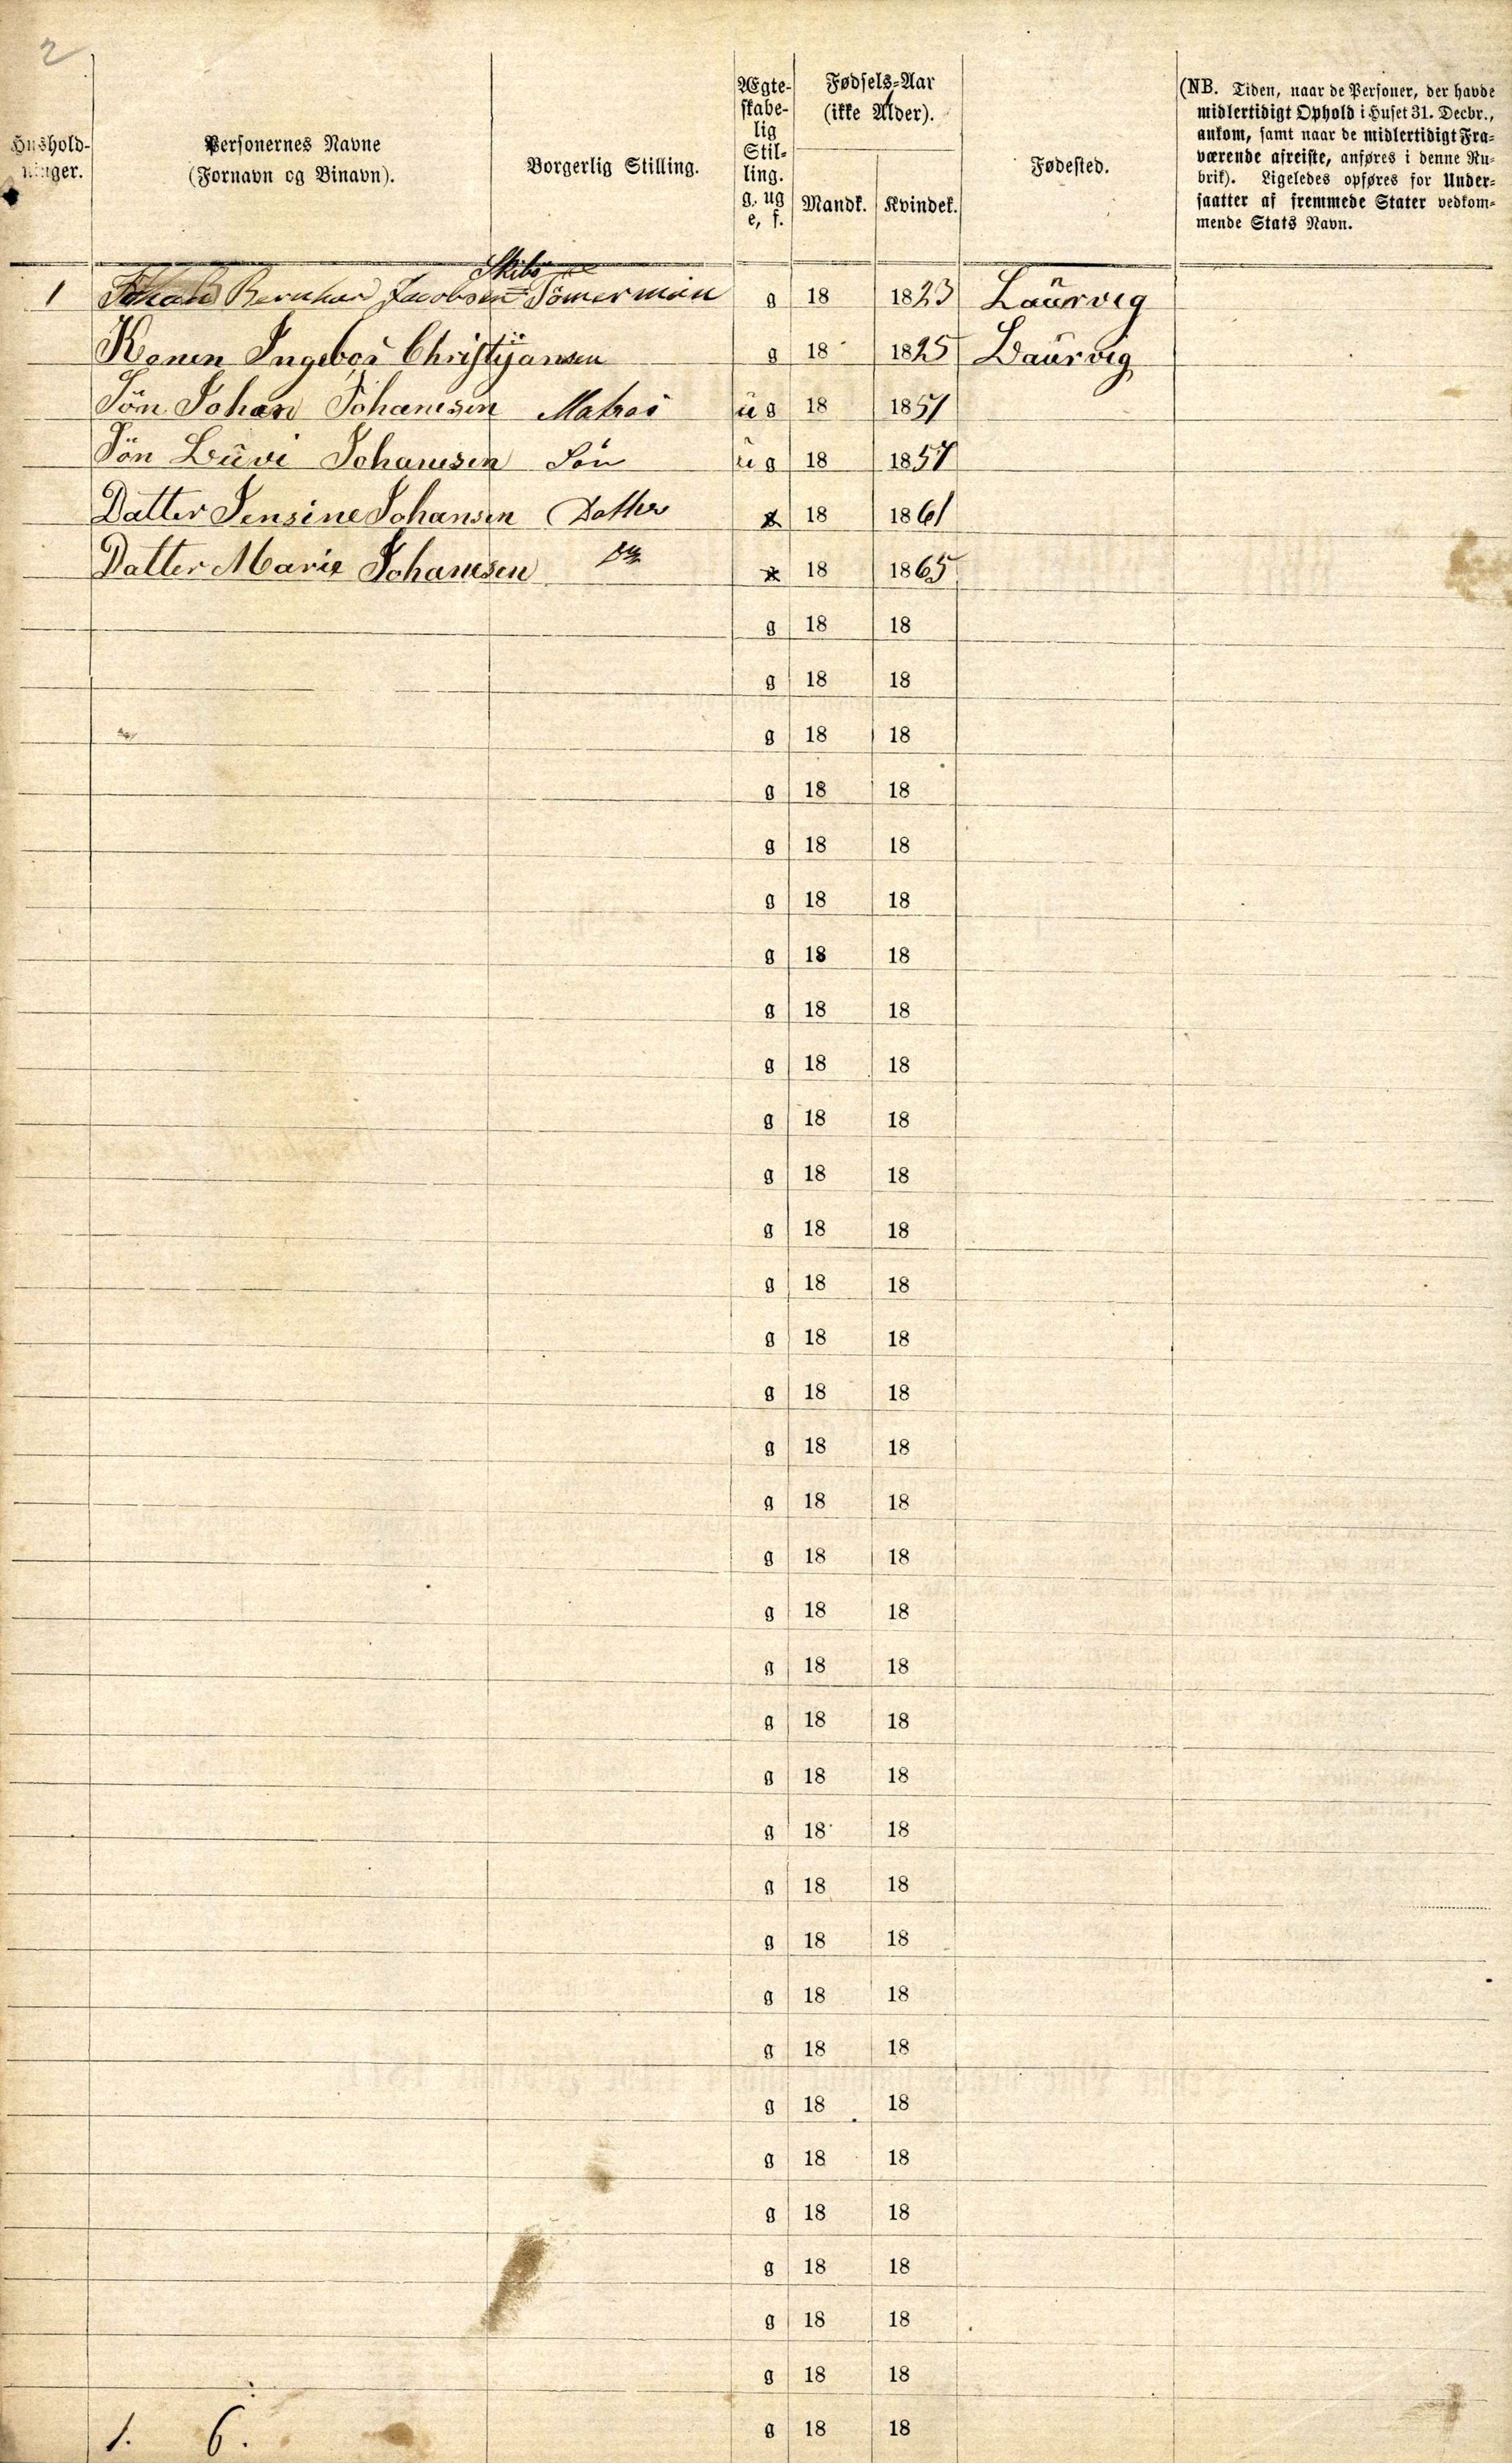 2
Hushold-
ninger.
Personernes Navne
(Fornavn og Binavn).
Borgerlig Stilling.
Ægte-
skabe-
lig
Stil-
ling.
g. ug
e, f.
Fødsels-Aar
(ikke Alder).
Mandk. Kvindek.
Fødested.
(NB. Tiden, naar de Personer, der havde
midlertidigt Ophold i Huset 31. Decbr.,
ankom, samt naar de midlertidigt Fra-
værende afreiste, anføres i denne Ru-
brik). Ligeledes opføres for Under-
saatter af fremmede Stater vedkom-
mende Stats Navn.
Skibs
1 Johan Bernhar Jacobsen Tömerman g 18 1823 Laurvig
Konen Ingebor Christyansen g 18 1825 Laurvig
Sön Johan Johannsen Matros ug 18 1851
Sön Luvi Johannsen Sön ug 18 1857
Datter Jensine Johansen Datter 18 1861
Datter Marie Johannsen 18 1865
g 18 18
g 18 18
g 18 18
g 18 18
g 18 18
g 18 18
g 18 18
g 18 18
g 18 18
g 18 18
g 18 18
g 18 18
g 18 18
g 18 18
g 18 18
g 18 18
g 18 18
g 18 18
g 18 18
g 18 18
g 18 18
g 18 18
g 18 18
g 18 18
g 18 18
g 18 18
g 18 18
g 18 18
g 18 18
g 18 18
g 18 18
g 18 18
g 18 18
g 18 18
1. 6.